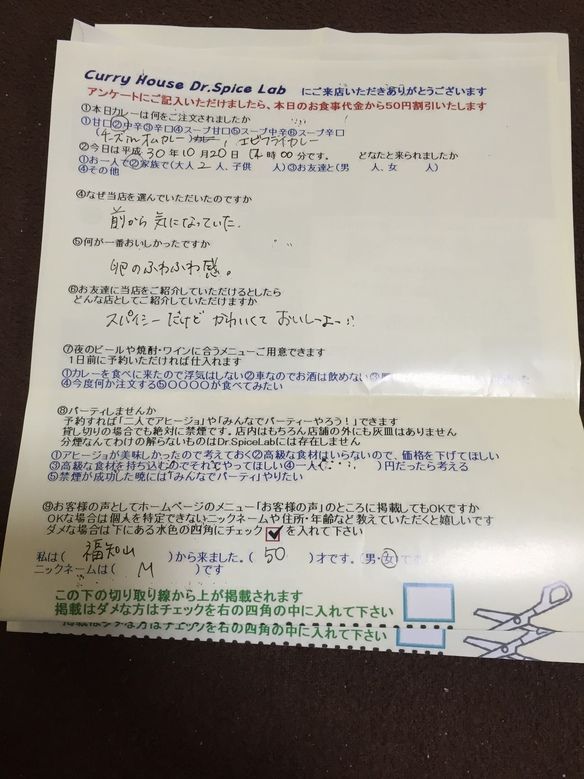 Curry House Dr.Spice Lab にご来店いただきありがとうございます
アンケートにご記入いただけましたら、本日のお食事代金から50円割引いたします
①本日カレーは何をご注文されましたか
①甘口②中辛③辛口④スープ甘口⑤スープ中辛⑥スープ辛口
(チーズinオムカレー) , エビフライカレー
②今日は平成 30年 10月 20日 時 00 分です。 どなたと来られましたか
①お一人で②家族で(大人 2 人、子供 人)③お友達と(男 人、女 人)
④その他
④なぜ当店を選んでいただいたのですか
前から気になっていた.
⑤何が一番おいしかったですか
卵のふわふわ感。
⑥お友達に当店をご紹介していただけるとしたら
どんな店としてご紹介していただけますか
スパイシーだけど かわいくて おいしーよー!?
⑦夜のビールや焼酎・ワインに合うメニューご用意できます
1日前に予約いただければ仕入れます
①カレーを食べに来たので浮気はしない②車なのでお酒は飲めない③
④今度何か注文する⑤〇〇〇〇が食べてみたい
⑧パーティしませんか
予約すれば「二人でアヒージョ」や「みんなでパーティーやろう!」できます
貸し切りの場合でも絶対に禁煙です。店内はもちろん店舗の外にも灰皿はありません
分煙なんてわけの解らないものはDr.SpiceLabには存在しません
①アヒージョが美味しかったので考えておく②高級な食材はいらないので、価格を下げてほしい
③高級な食材を持ち込むのでそれでやってほしい④一人( )円だったら考える
⑤禁煙が成功した暁には「みんなでパーティ」やりたい
⑨お客様の声としてホームページのメニュー「お客様の声」のところに掲載してもOKですか
OKな場合は個人を特定できないニックネームや住所・年齢など教えていただくと嬉しいです
ダメな場合は下にある水色の四角にチェック✔を入れて下さい
私は( 福知山 )から来ました。( 50 )才です。(男・女)で
ニックネームは( M )です
この下の切り取り線から上が掲載されます
掲載はダメな方はチェックを右の四角の中に入れて下さい
掲載はダメな方はチェックを右の四角の中に入れて下さい